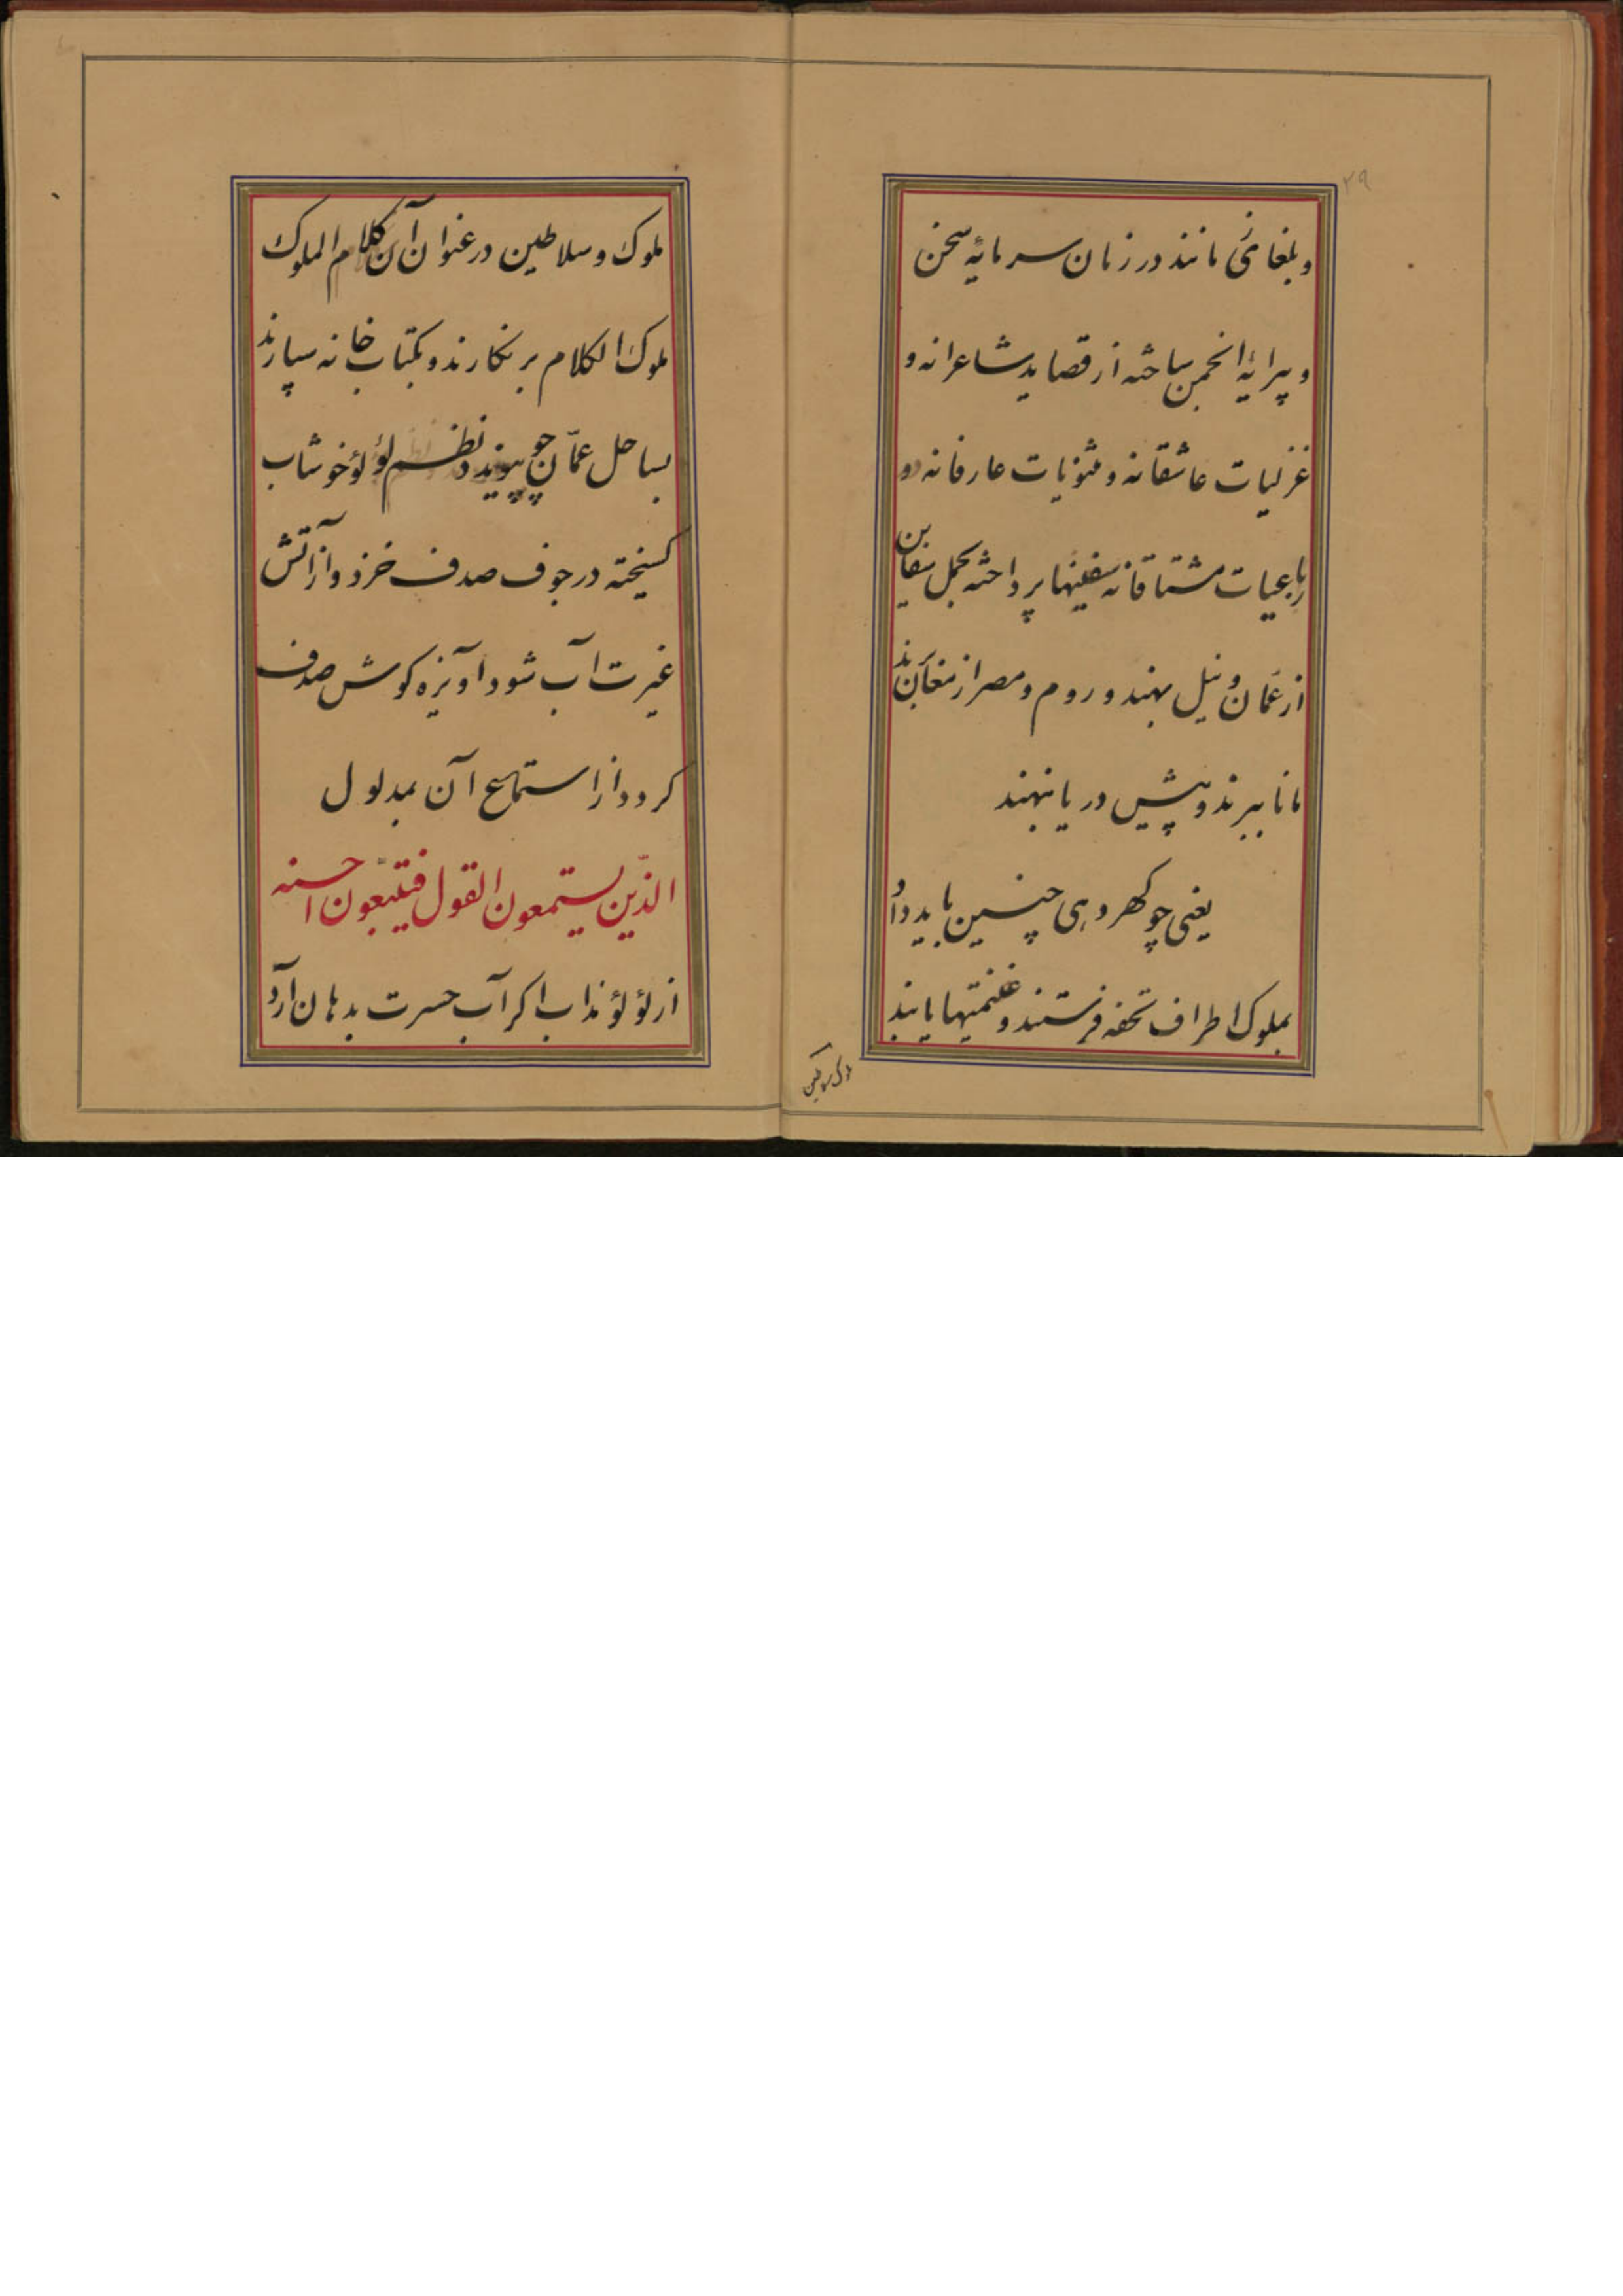 ۲۹
و بلغای بی مانند در زمان سرمایهٔ سخن
و پیرایهٔ انجمن ساخته از قصاید شاعرانه و
غزلیات عاشقانه و مثنویات عارفانه و
رباعیات مشتاقانه سفینها پرداخته بحمل سفاین
از عمان و نیل بهند و روم و مصر ارمغان برند
مانا ببرند و پیش دریا بنهند
یعنی چو کهر دهی چنین باید داد
بملوک اطراف تحفه فرستند و غنیمتها یابند
ملوک و سلاطین
ملوک و سلاطین در عنوان آن کلام الملوک
ملوک الکلام بر نکارند و بکتاب خانه سپارند
بساحل عمّان چو پیوندد نظم لؤلؤ خوشاب
کسیخته در جوف صدف خزد و از آتش
غیرت آب شود آویزه کوش صدف
کردد از استماع آن بمدلول
الذّین یستمعون القول فیتبعون احسنه
از لؤلؤ مذاب اکر آب حسرت بدهان آرد